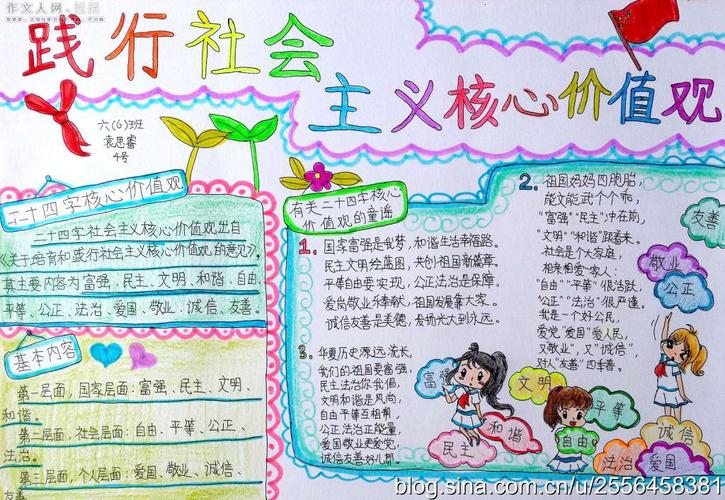 作文人网
www.zuowenren.com
践行社会
主义核心价值观
六(6)班
袁思睿
4号
二十四字核心价值观
二十四字社会主义核心价值观出自
《关于培育和践行社会主义核心价值观的意见》,
其主要内容为富强、民主、文明、和谐、自由、
平等、公正、法治、爱国、敬业、诚信、友善。
基本内容
第一层面,国家层面:富强、民主、文明、
和谐。
第二层面,社会层面:自由、平等、公正、
法治。
第三层面,个人层面:爱国、敬业、诚信、
友善
有关二十四字核心
价值观的童谣
1.国家富强是我梦,和谐生活幸福路。
民主文明绘蓝图,共创祖国新篇章。
平等自由要实现,公正法治是保障。
爱岗敬业乐奉献,祖国发展靠大家。
诚信友善是美德,发扬光大到永远。
2.祖国妈妈四胞胎,
能文能武个个乖,
“富强”“民主”冲在前,
“文明”“和谐”跟着来。
社会是个大家庭,
相亲相爱一家人:
“自由”“平等”很活跃,
“公正”“法治”很严谨。
我是一个好公民,
爱党“爱国”爱人民,
又“敬业”,又“诚信”,
对人“友善”四季香。
3.华夏历史源远流长,
我们的祖国要富强,
民主法治你我倡,
文明和谐是风尚,
自由平等互相帮,
公正法治正能量,
爱国敬业更爱党,
诚信友善好儿郎。
富强
民主
和谐
文明
自由
平等
法治
爱国
诚信
公正
敬业
友善
blog.sina.com.cn/u/2556458381